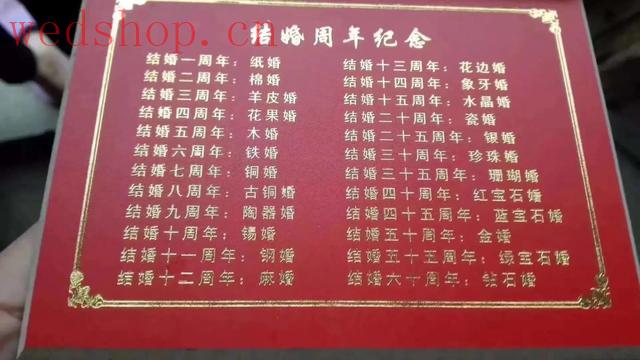 wedshop.cn
结婚周年纪念
结婚一周年：纸婚
结婚二周年：棉婚
结婚三周年：羊皮婚
结婚四周年：花果婚
结婚五周年：木婚
结婚六周年：铁婚
结婚七周年：铜婚
结婚八周年：古铜婚
结婚九周年：陶器婚
结婚十周年：锡婚
结婚十一周年：钢婚
结婚十二周年：麻婚
结婚十三周年：花边婚
结婚十四周年：象牙婚
结婚十五周年：水晶婚
结婚二十周年：瓷婚
结婚二十五周年：银婚
结婚三十周年：珍珠婚
结婚三十五周年：珊瑚婚
结婚四十周年：红宝石婚
结婚四十五周年：蓝宝石婚
结婚五十周年：金婚
结婚五十五周年：绿宝石婚
结婚六十周年：钻石婚